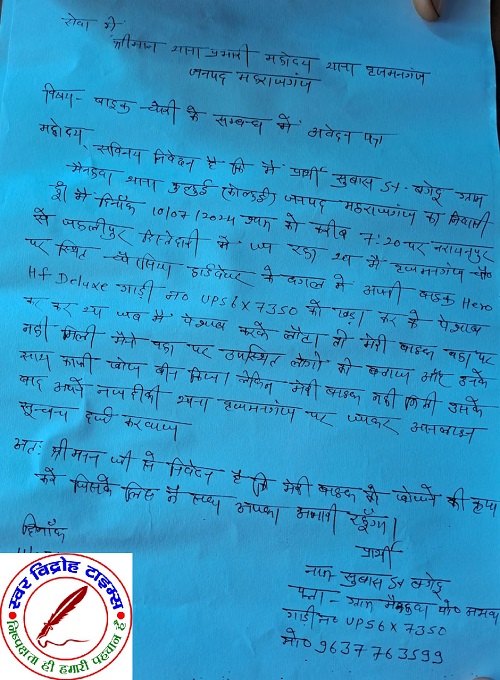 सेवा में
श्रीमान थाना प्रभारी महोदय थाना बृजमनगंज
जनपद महराजगंज
विषय- बाइक चोरी के सम्बन्ध में आवेदन पत्र
महोदय, सविनय निवेदन है कि मैं प्रार्थी सुबास S/o बगेदू ग्राम
थाना जनपद महराजगंज का निवासी
मैं दिनाँक 10/07/2024 शाम को करीब 7:20 पर नरायनपुर
से में जा रहा था मैं बृजमनगंज
पर स्थित के बगल में अपनी बाइक Hero
Hf Deluxe गाड़ी न० UP56X7350 को खड़ा कर के पेशाब
कर रहा था जब मैं पेशाब करके लौटा तो मेरी बाइक वहा पर
नही मिली मैंने वहा पर उपस्थित लोगो को बताया और उनके
साथ काफी खोज बीन किया लेकिन मेरी बाइक नही मिली उसके
बाद अपने नजदीकी थाना बृजमनगंज पर जाकर
सूचना दर्ज करवाया
अतः श्रीमान जी से निवेदन है कि मेरी बाइक को खोजने की कृपा
करें जिसके लिए मैं सदा आपका आभारी रहूँगा।
दिनाँक
प्रार्थी
नाम सुबास S/o बगेदू
पता- ग्राम पो०
गाड़ी न० UP56X7350
मो० 9637763599
स्वर विद्रोह टाइम्स
निष्पक्षता ही हमारी पहचान है